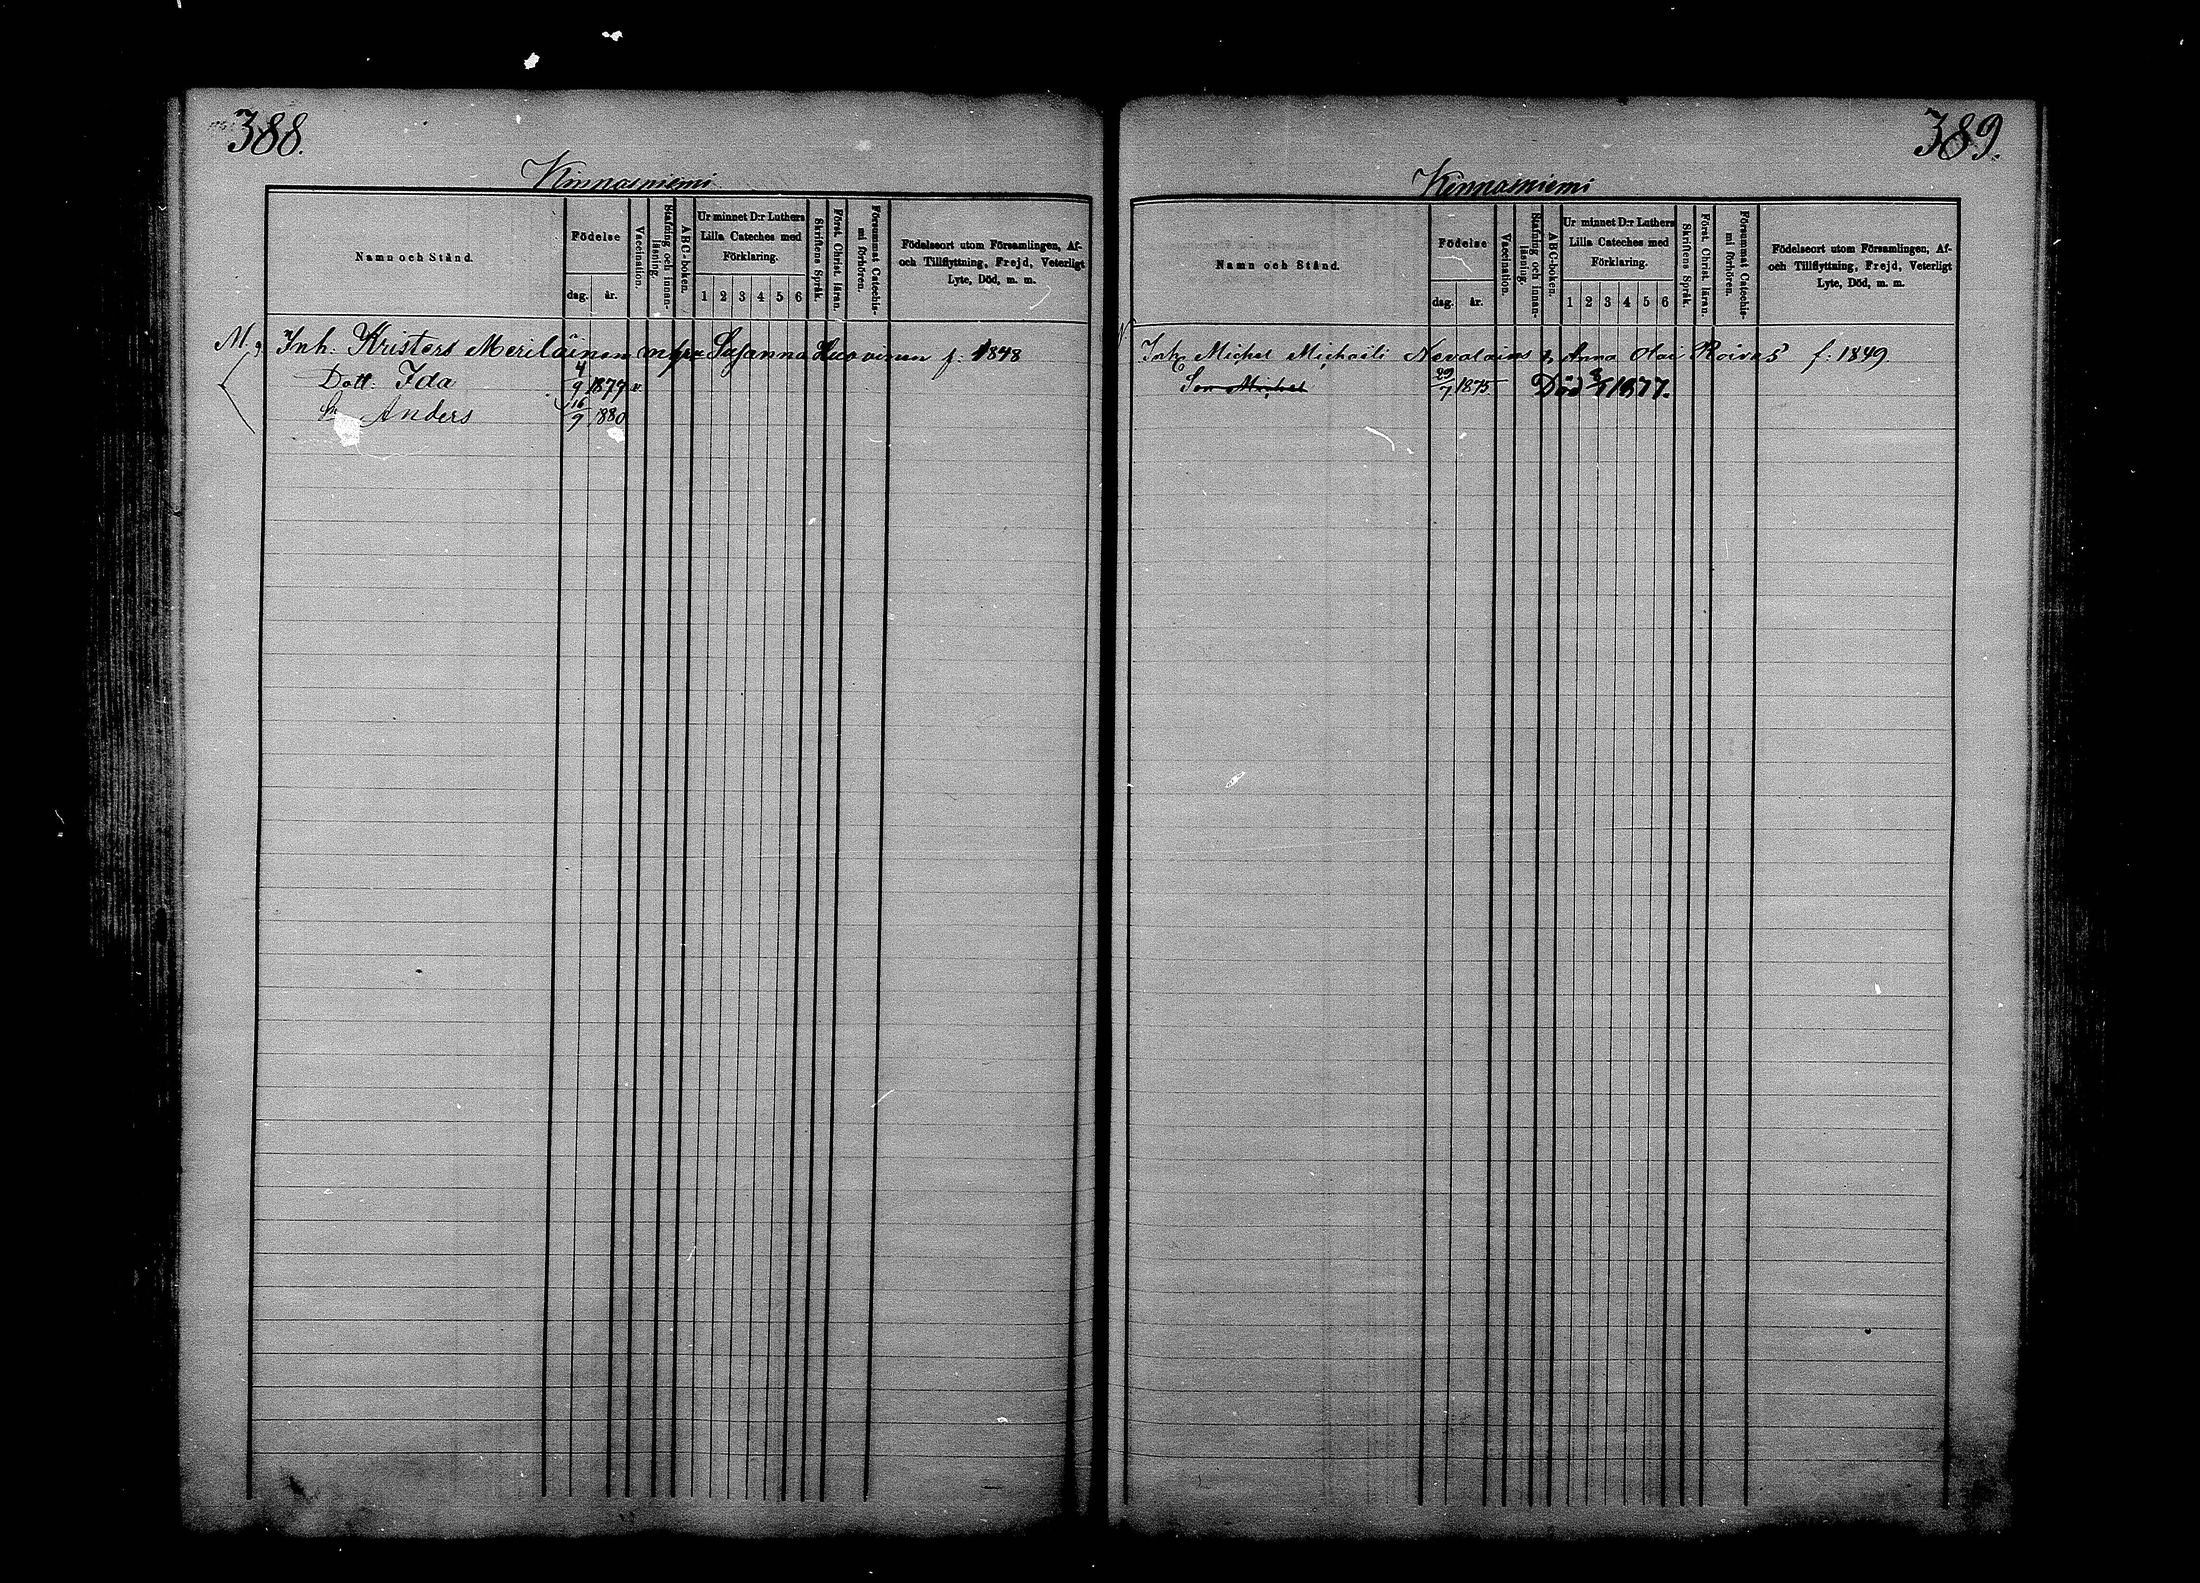 388.
Kinnasniemi
Namn och Stånd.
Födelse
dag. år.
Vaccination.
Stafning och innan-läsning.
ABC-boken.
Ur minnet D:r Luthers
Lilla Cateches med
Förklaring.
1 2 3 4 5 6
Skriftens Språk.
Först. Christ. läran.
Försummat Catechis-mi förhören.
Födelseort utom Församlingen, Af-
och Tillflyttning, Frejd, Veterligt
Lyte, Död, m. m.
M. Inh. Kristers Meriläinen Susanna f. 1848
Dott. Ida 4/9 1879 v.
Sn Anders 16/9 1880
389.
Kinnasniemi
Namn och Stånd.
Födelse
dag. år.
Vaccination.
Stafning och innan-läsning.
ABC-boken.
Ur minnet D:r Luthers
Lilla Cateches med
Förklaring.
1 2 3 4 5 6
Skriftens Språk.
Först. Christ. läran.
Försummat Catechis-mi förhören.
Födelseort utom Församlingen, Af-
och Tillflyttning, Frejd, Veterligt
Lyte, Död, m. m.
Michel Michaili Anna Olai Roivas f. 1849
Son Michel 29/7 1875 Död 1877.